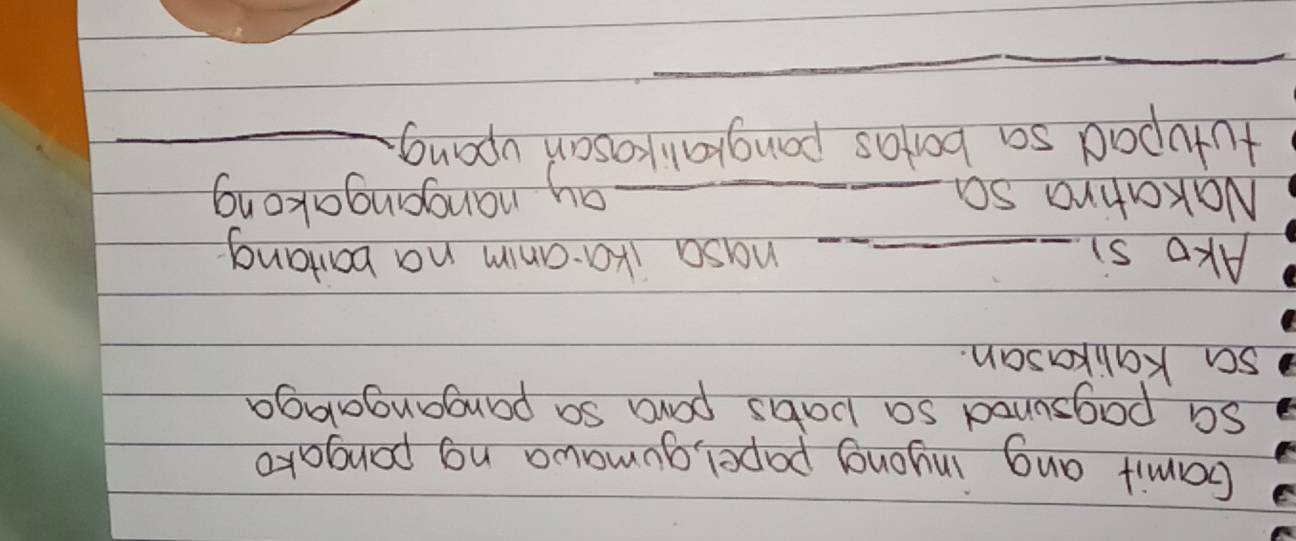 Gamit ang inyong papel, gumawa ng pangako
sa pagsunod sa batas para sa pangangalaga
sa kalikasan.
Ako si ________ nasa ika-anim na baitang
Nakatira sa ________ ay nangangakong
tutupad sa batas pangkalikasan upang ________
________